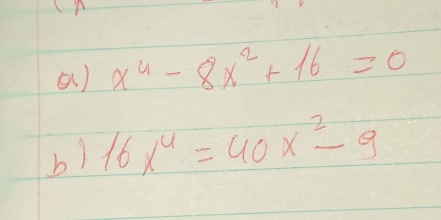 a) x⁴ - 8x² + 16 = 0
b) 16x⁴ = 40x² - 9